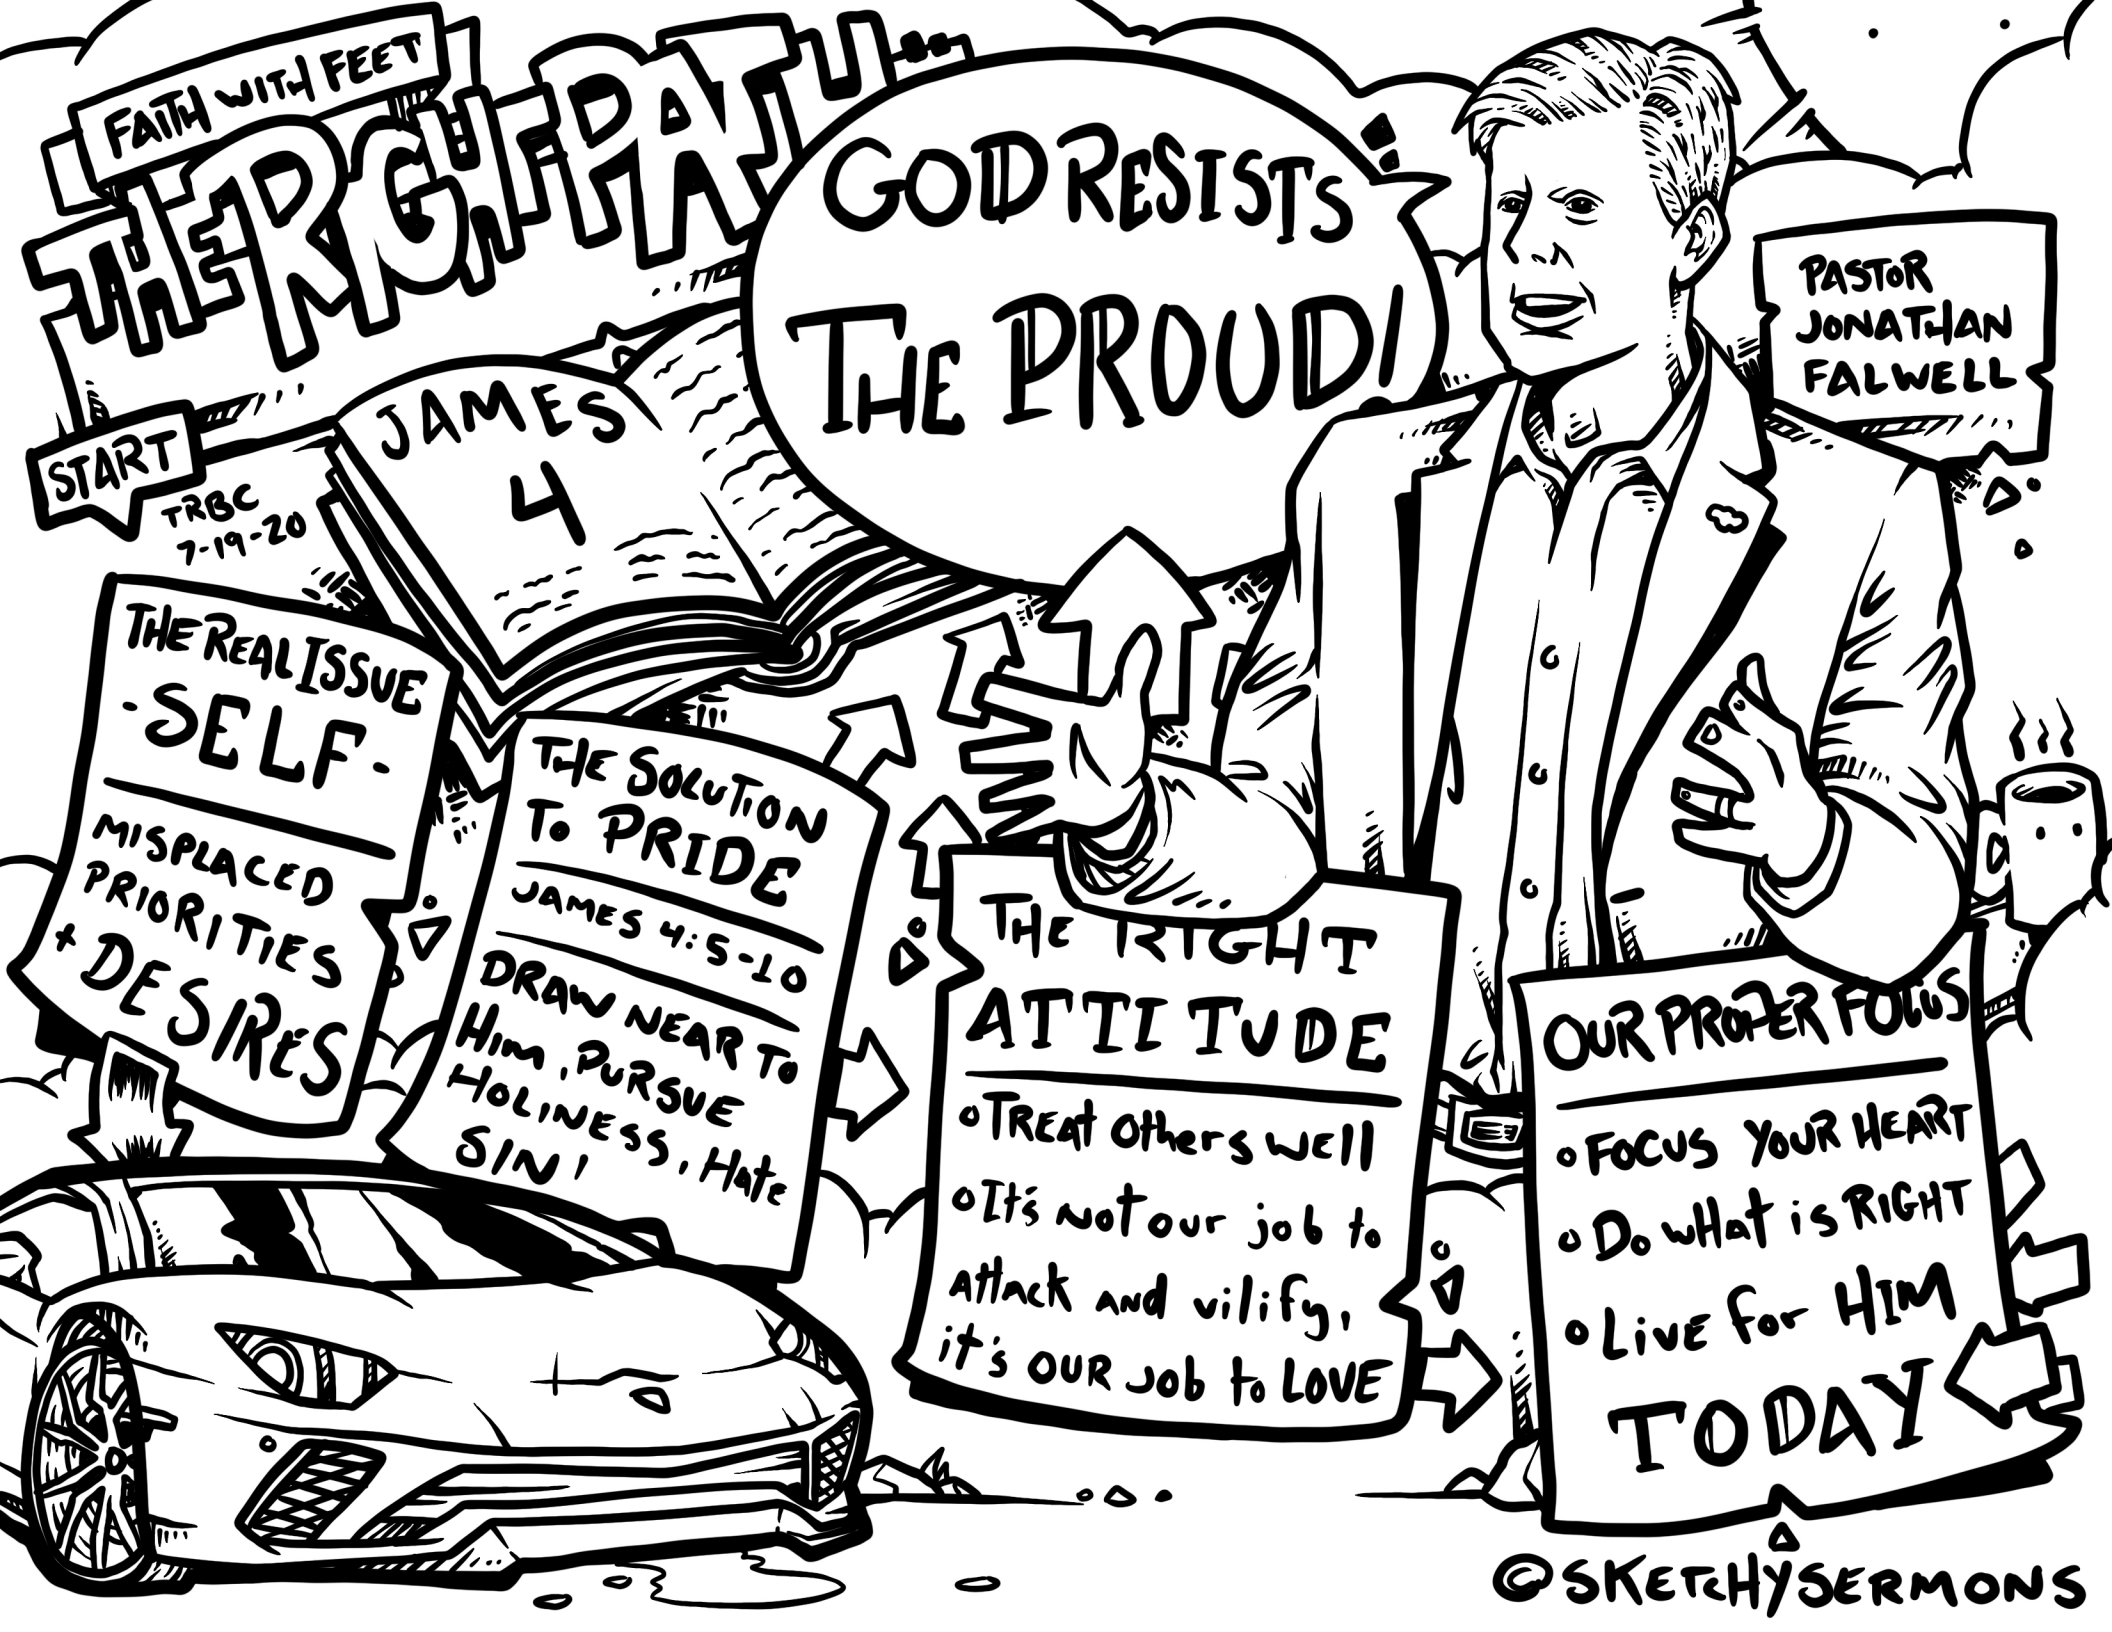 FAITH WITH FEET
THE RIGHT PATH
START
TRBC
7-19-20
JAMES
4
GOD RESISTS
THE PROUD!
PASTOR
JONATHAN
FALWELL
THE REAL ISSUE
-SELF-
MISPLACED
PRIORITIES
+ DESIRES
THE SOLUTION
TO PRIDE
JAMES 4:5-10
DRAW NEAR TO
HIM, PURSUE
HOLINESS, Hate
SIN!
THE RIGHT
ATTITUDE
• TREAt OtHers WEll
• It's Not our job to
Attack AND vilify,
it's OUR Job to LOVE
OUR PROPER FOCUS
• FOCUS YOUR HEART
• Do wHat is RIGHT
• LiVE for HIM
TODAY
@SKETCHYSERMONS